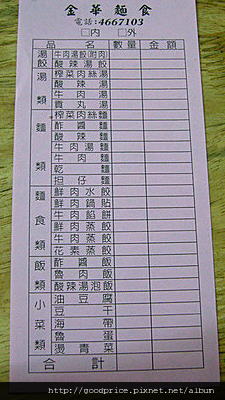 金華麵食
電話:4667103
□內 □外
品名 數量 金額
湯餃 牛肉湯餃(附肉)
酸辣湯餃
湯類 榨菜肉絲湯
酸辣湯
牛肉湯
貢丸湯
麵類 榨菜肉絲麵
酢醬麵
酸辣麵
牛肉湯麵
牛肉麵
乾麵
担仔麵
麵食類 鮮肉水餃
鮮肉鍋貼
牛肉餡餅
鮮肉蒸餃
牛肉蒸餃
花素蒸餃
飯類 酢醬飯
魯肉飯
酸辣湯泡飯
小菜類 油豆腐
豆干
海帶
魯蛋
燙青菜
合計
http://goodprice.pixnet.net/album